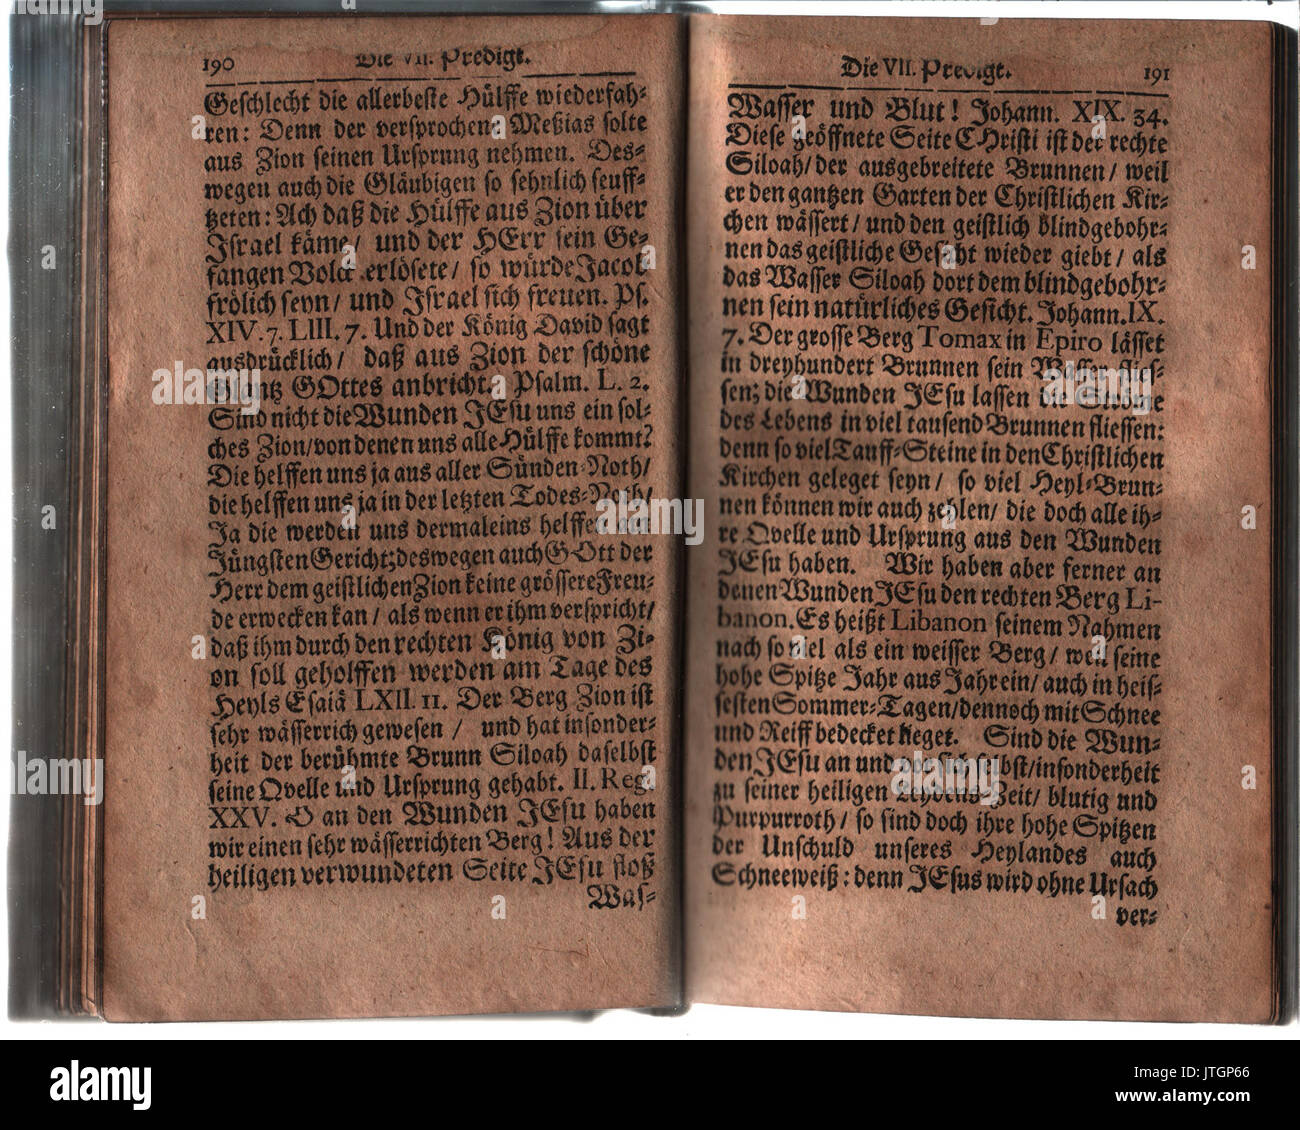 190 Die VII. Predigt.
Geschlecht die allerbeste Hülffe wiederfah-
ren: Denn der versprochene Meßias solte
aus Zion seinen Ursprung nehmen. Des-
wegen auch die Gläubigen so sehnlich seuff-
tzeten: Ach daß die Hülffe aus Zion über
Israel käme/ und der HErr sein Ge-
fangen Volck erlösete/ so würde Jacob
frölich seyn/ und Israel sich freuen. Ps.
XIV. 7. LIII. 7. Und der König David sagt
ausdrücklich/ daß aus Zion der schöne
Glantz GOttes anbricht. Psalm. L. 2.
Sind nicht die Wunden JEsu uns ein sol-
ches Zion/ von denen uns alle Hülffe kommt?
Die helffen uns ja aus aller Sünden-Noth/
die helffen uns ja in der letzten Todes-Noth/
Ja die werden uns dermaleins helffen am
Jüngsten Gericht; deswegen auch GOtt der
Herr dem geistlichen Zion keine grössere Freu-
de erwecken kan/ als wenn er ihm verspricht/
daß ihm durch den rechten König von Zi-
on soll geholffen werden am Tage des
Heyls Esaiä LXII. 11. Der Berg Zion ist
sehr wässerrich gewesen / und hat insonder-
heit der berühmte Brunn Siloah daselbst
seine Qvelle und Ursprung gehabt. II. Reg.
XXV. O an den Wunden JEsu haben
wir einen sehr wässerrichten Berg! Aus der
heiligen verwundeten Seite JEsu floß
Was-
Die VII. Predigt. 191
Wasser und Blut! Johann. XIX. 34.
Diese geöffnete Seite CHristi ist der rechte
Siloah/ der ausgebreitete Brunnen/ weil
er den gantzen Garten der Christlichen Kir-
chen wässert/ und den geistlich blindgebohr-
nen das geistliche Gesicht wieder giebt/ als
das Wasser Siloah dort dem blindgebohr-
nen sein natürliches Gesicht. Johann. IX.
7. Der grosse Berg Tomax in Epiro lässet
in dreyhundert Brunnen sein Wasser flies-
sen; die Wunden JEsu lassen die Ströme
des Lebens in viel tausend Brunnen fliessen:
denn so viel Tauff-Steine in den Christlichen
Kirchen geleget seyn/ so viel Heyl-Brun-
nen können wir auch zehlen/ die doch alle ih-
re Qvelle und Ursprung aus den Wunden
JEsu haben. Wir haben aber ferner an
denen Wunden JEsu den rechten Berg Li-
banon. Es heißt Libanon seinem Nahmen
nach so viel als ein weisser Berg/ weil seine
hohe Spitze Jahr aus Jahr ein/ auch in heis-
sesten Sommer-Tagen/ dennoch mit Schnee
und Reiff bedecket lieget. Sind die Wun-
den JEsu an und vor sich selbst/ insonderheit
zu seiner heiligen Leydens-Zeit/ blutig und
Purpurroth/ so sind doch ihre hohe Spitzen
der Unschuld unseres Heylandes auch
Schneeweiß: denn JEsus wird ohne Ursach
ver-
alamy
Image ID: JTGP66
www.alamy.com